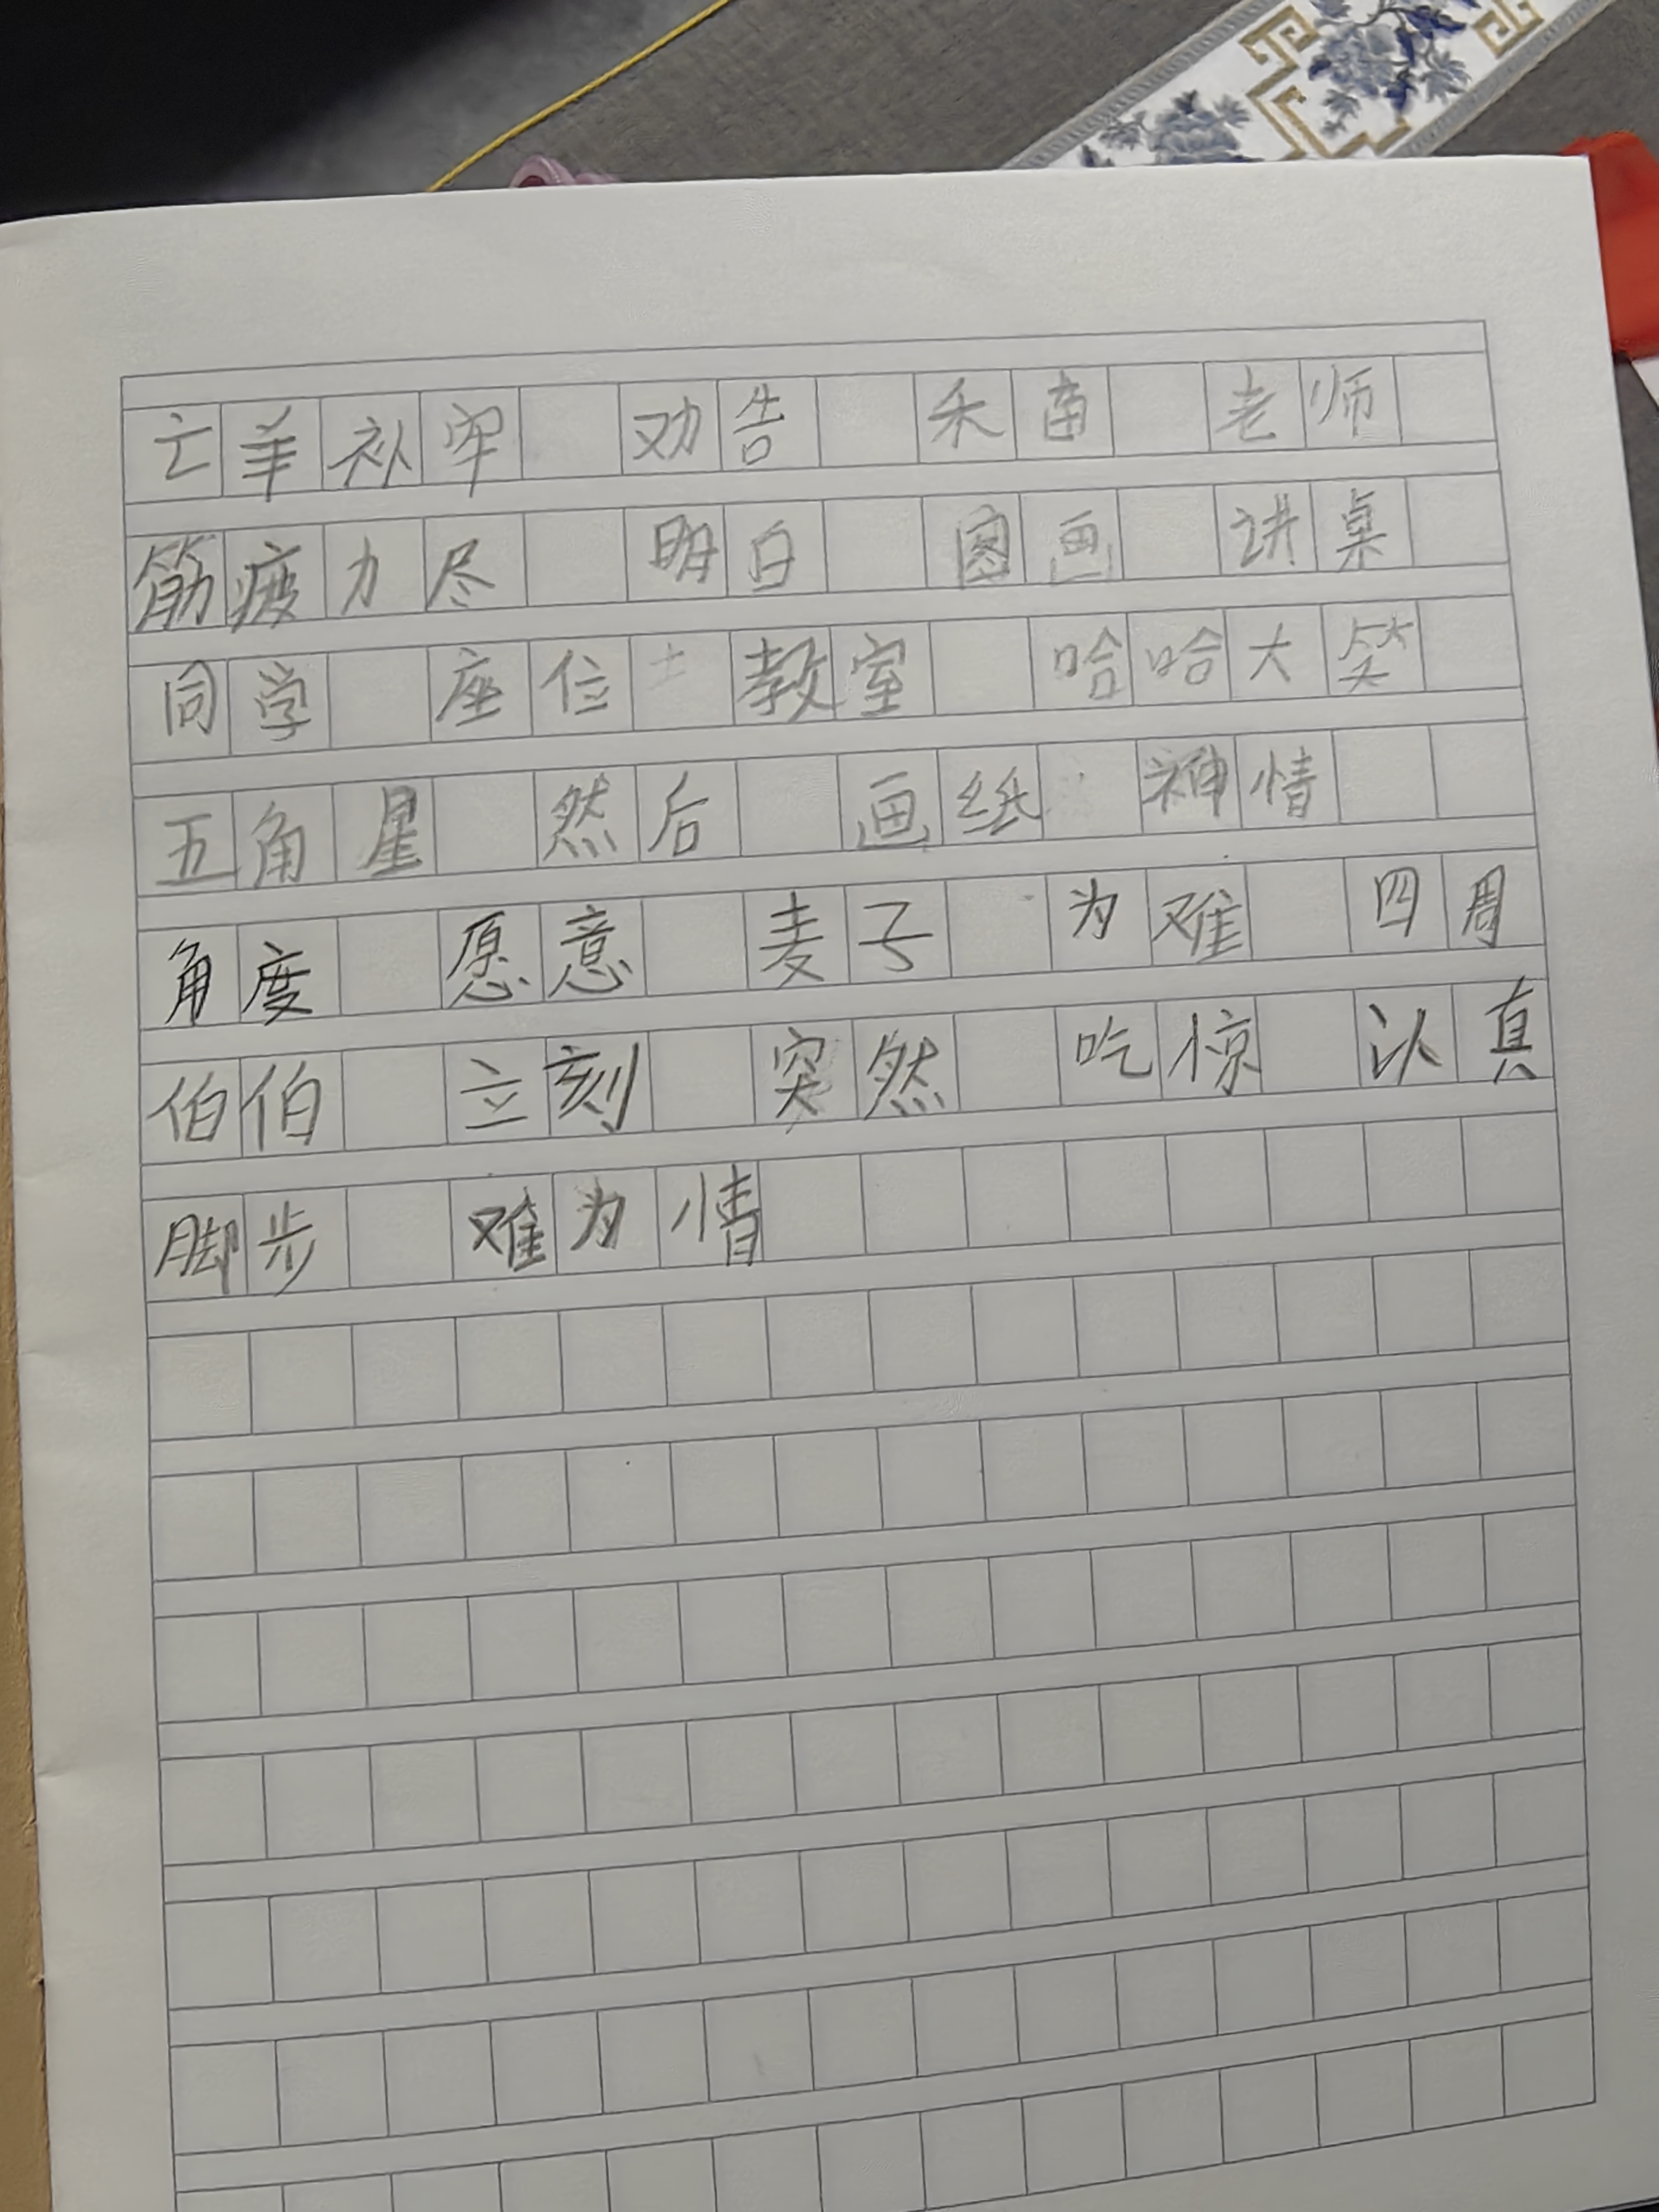 亡羊补牢 劝告 禾苗 老师
筋疲力尽 明白 图画 讲桌
同学 座位 教室 哈哈大笑
五角星 然后 画纸 神情
角度 愿意 麦子 为难 四周
伯伯 立刻 突然 吃惊 认真
脚步 难为情